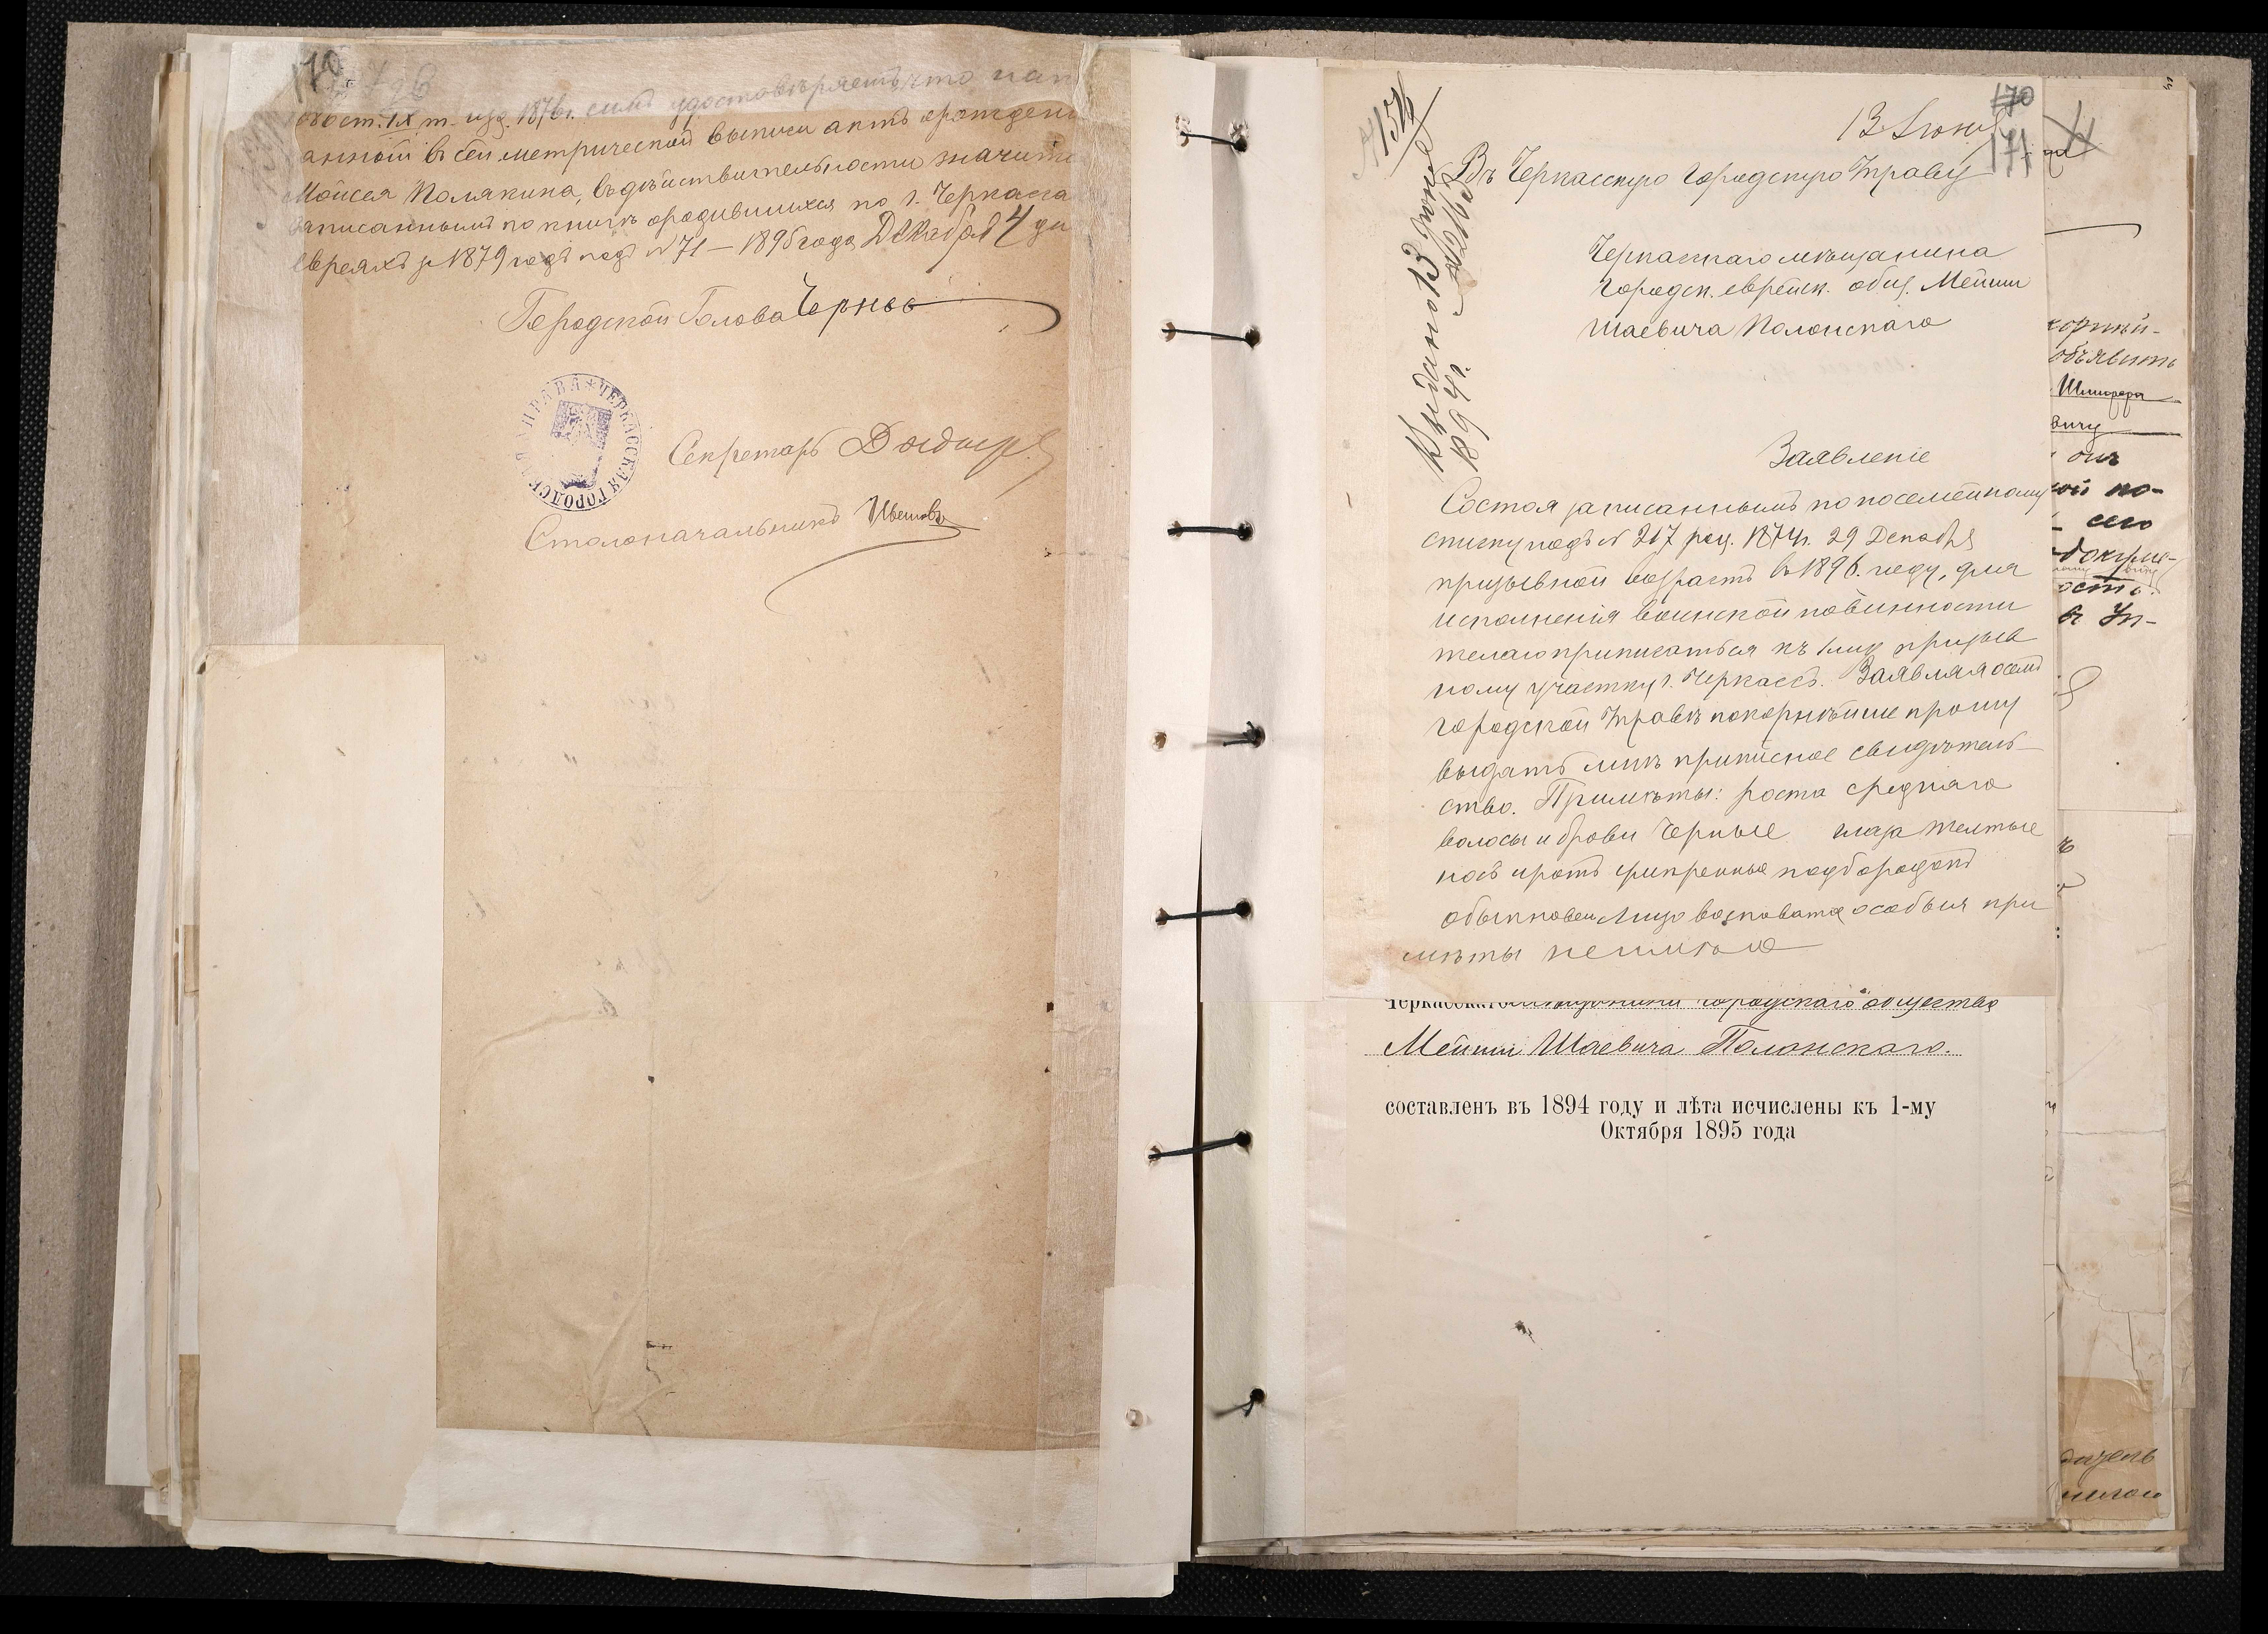 170
796
1080 ст. IX т. изд. 1876 г. симъ удостовѣряетъ что нап
санной въ сей метрической выписи актъ о рожден
Мойсея Полякина, въ дѣйствительности значитс
записаннымъ по книгѣ о родившихся по г. Черкасса
евреяхъ за 1879 годъ подъ № 71 — 1895 года Декабря 4 дн
Городской Голова
ЧЕРКАССКАЯ ГОРОДСКАЯ УПРАВА
Секретарь
Столоначальникъ
13 Іюня
170
171
Въ Черкасскую Городскую Управу
Выдано 13 Іюня
1894 г.
Черкасскаго мѣщанина
городск. еврейск. общ. Мейши
Шаевича Полонскаго
Заявленіе
Состоя записаннымъ по посемейному
списку подъ № 217 рец. 1874 г. 29 Декабря
призывной возрастъ въ 1896 году, для
исполненія воинской повинности
желаю приписаться къ 1му призыв
ному участку г. Черкассъ. Заявляя о семъ
Городской Управѣ покорнѣйше прошу
выдать мнѣ приписное свидѣтель-
ство. Примѣты: роста средняго
волосы и брови черные глаза желтые
носъ и ротъ умѣренные подбородокъ
обыкновен. лицо особыя при
мѣты неимѣю
Черкасскаго мѣщанина городскаго общества
Мейши Шаевича Полонскаго.
составленъ въ 1894 году и лѣта исчислены къ 1-му
Октября 1895 года
объявить
вичу
онъ
ой по-
сего
докуме-
ость